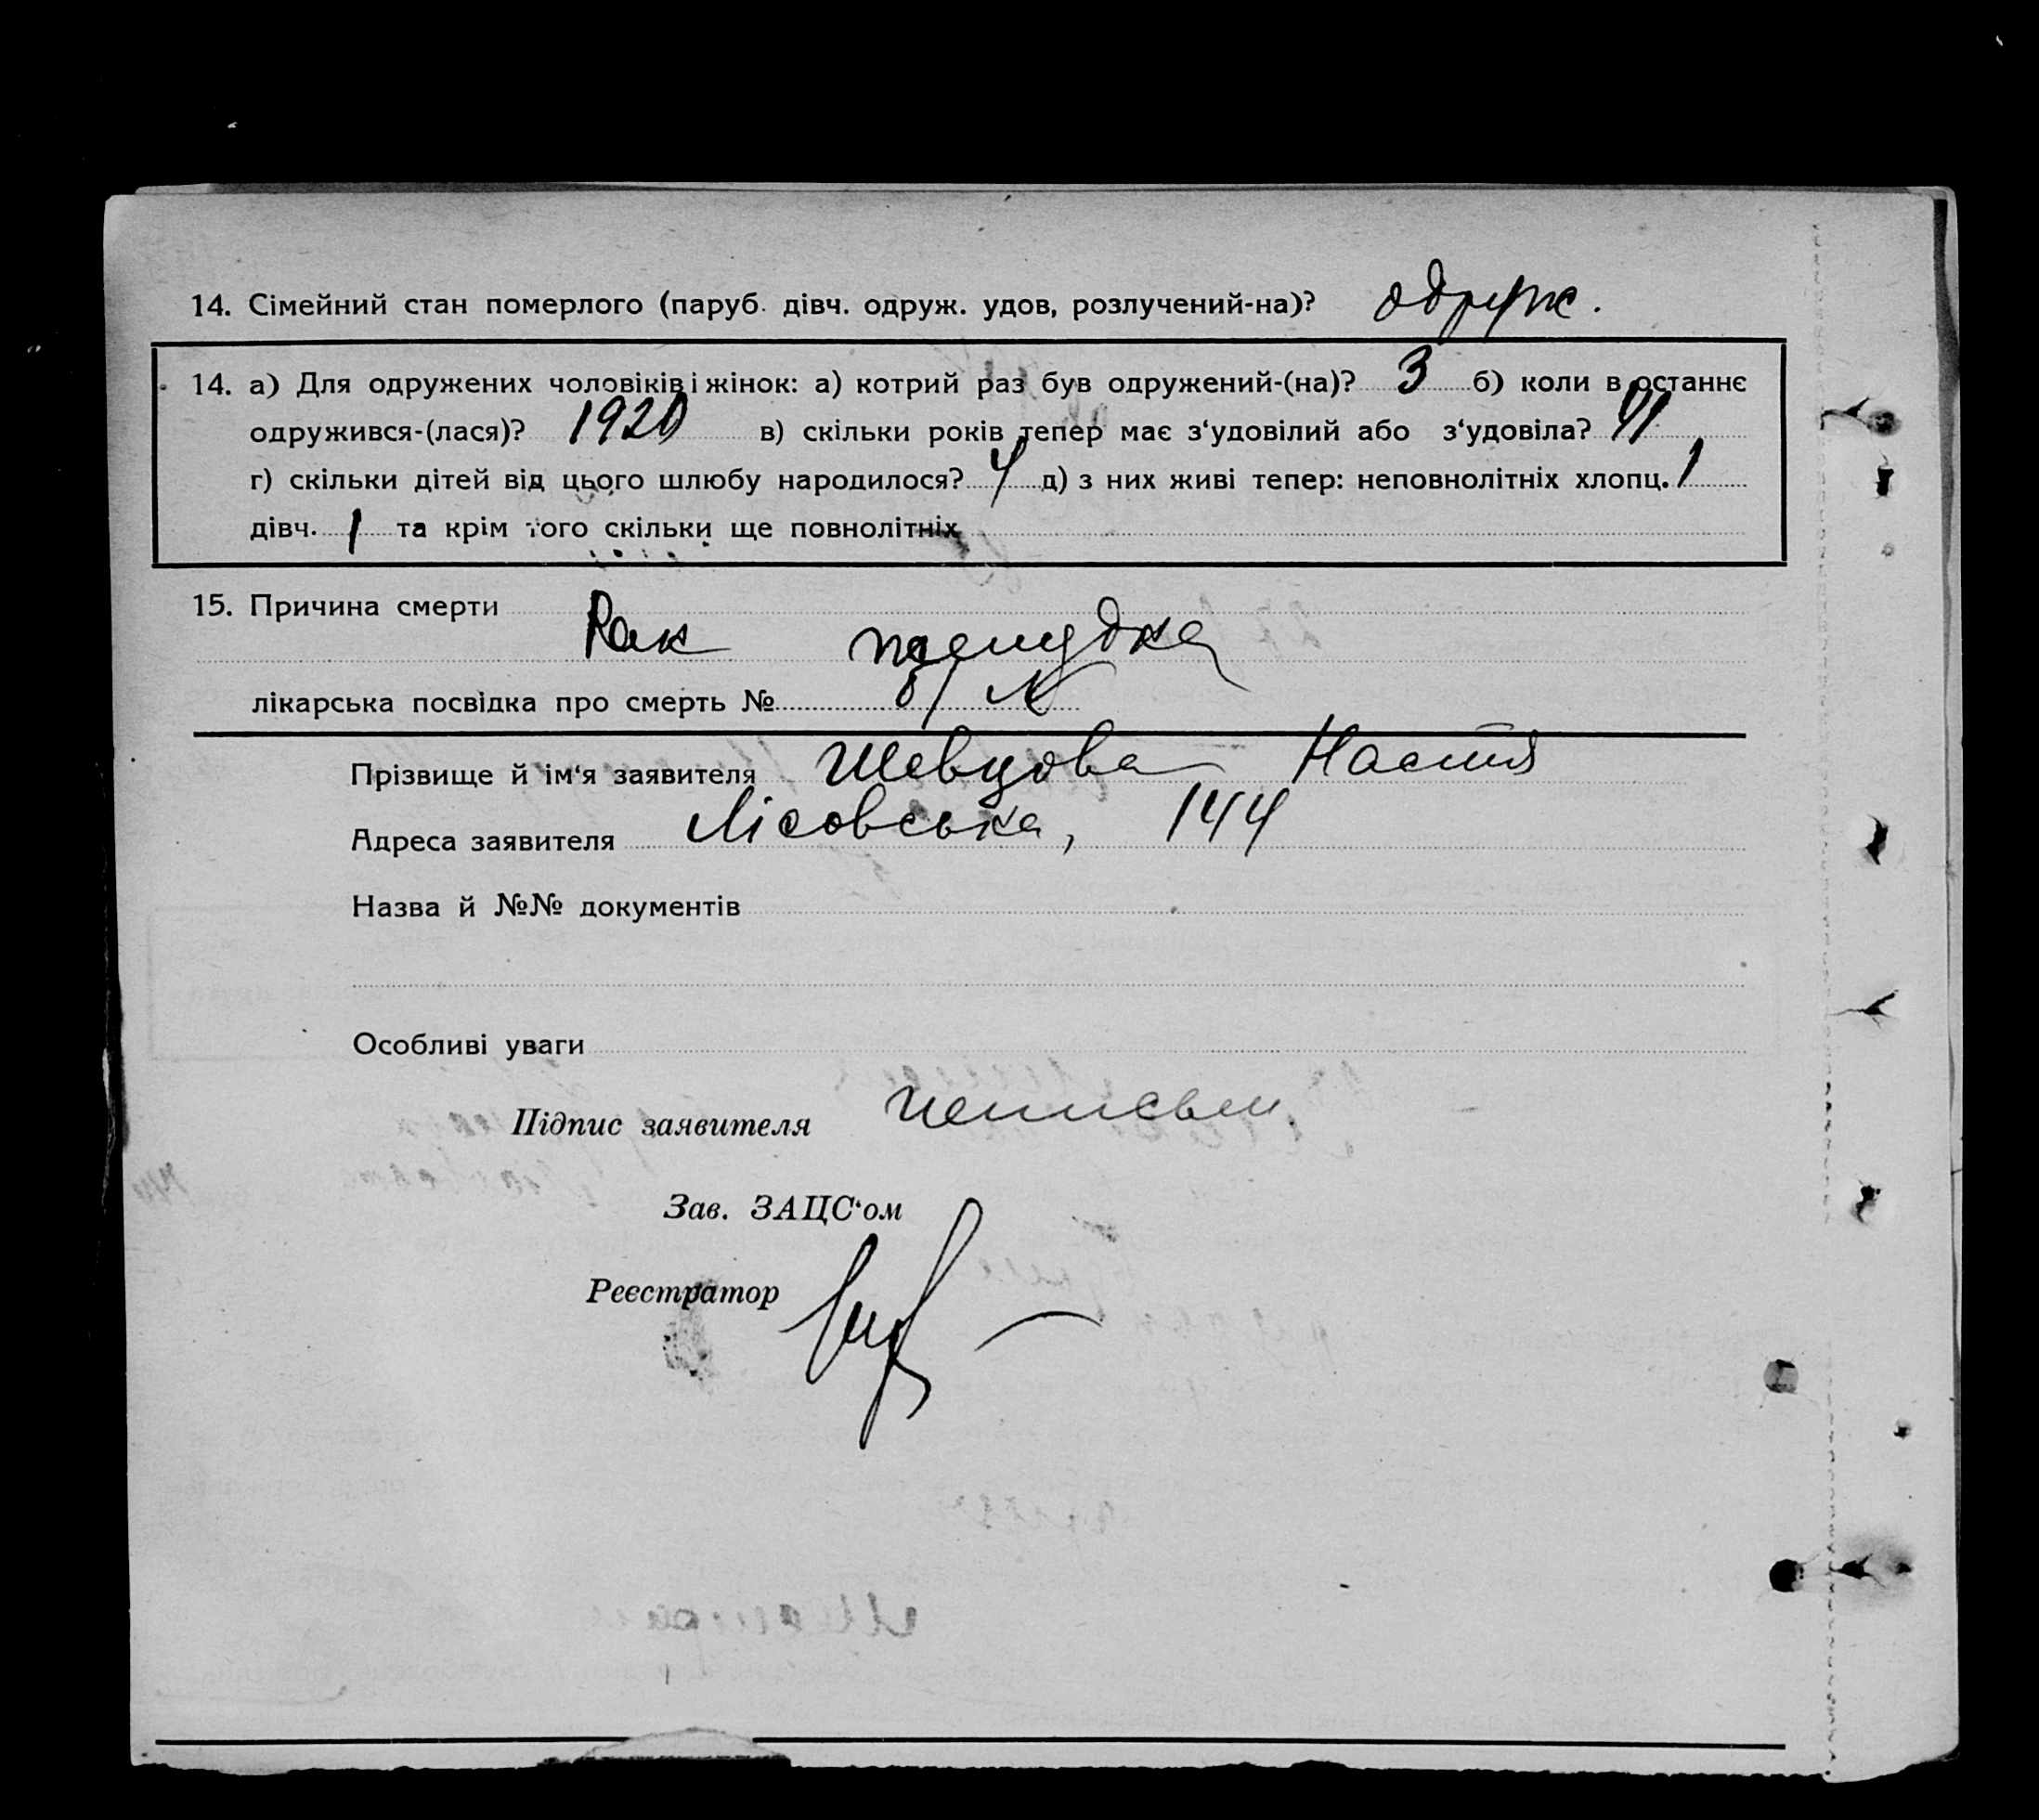 14. Сімейний стан померлого (паруб. дівч. одруж. удов, розлучений-на)? одруж.
14. а) Для одружених чоловіків і жінок: а) котрий раз був одружений-(на)? 3 б) коли в останнє
одружився-(лася)? 1920 в) скільки років тепер має з‘удовілий або з‘удовіла?
г) скільки дітей від цього шлюбу народилося? 4 д) з них живі тепер: неповнолітніх хлопц. 1
дівч. 1 та крім того скільки ще повнолітніх
15. Причина смерти
Рак желудка
лікарська посвідка про смерть № б/N
Прізвище й ім‘я заявителя Шевцова Настя
Адреса заявителя Лісовська, 144
Назва й №№ документів
Особливі уваги
Підпис заявителя неписьм
Зав. ЗАЦС‘ом
Реєстратор